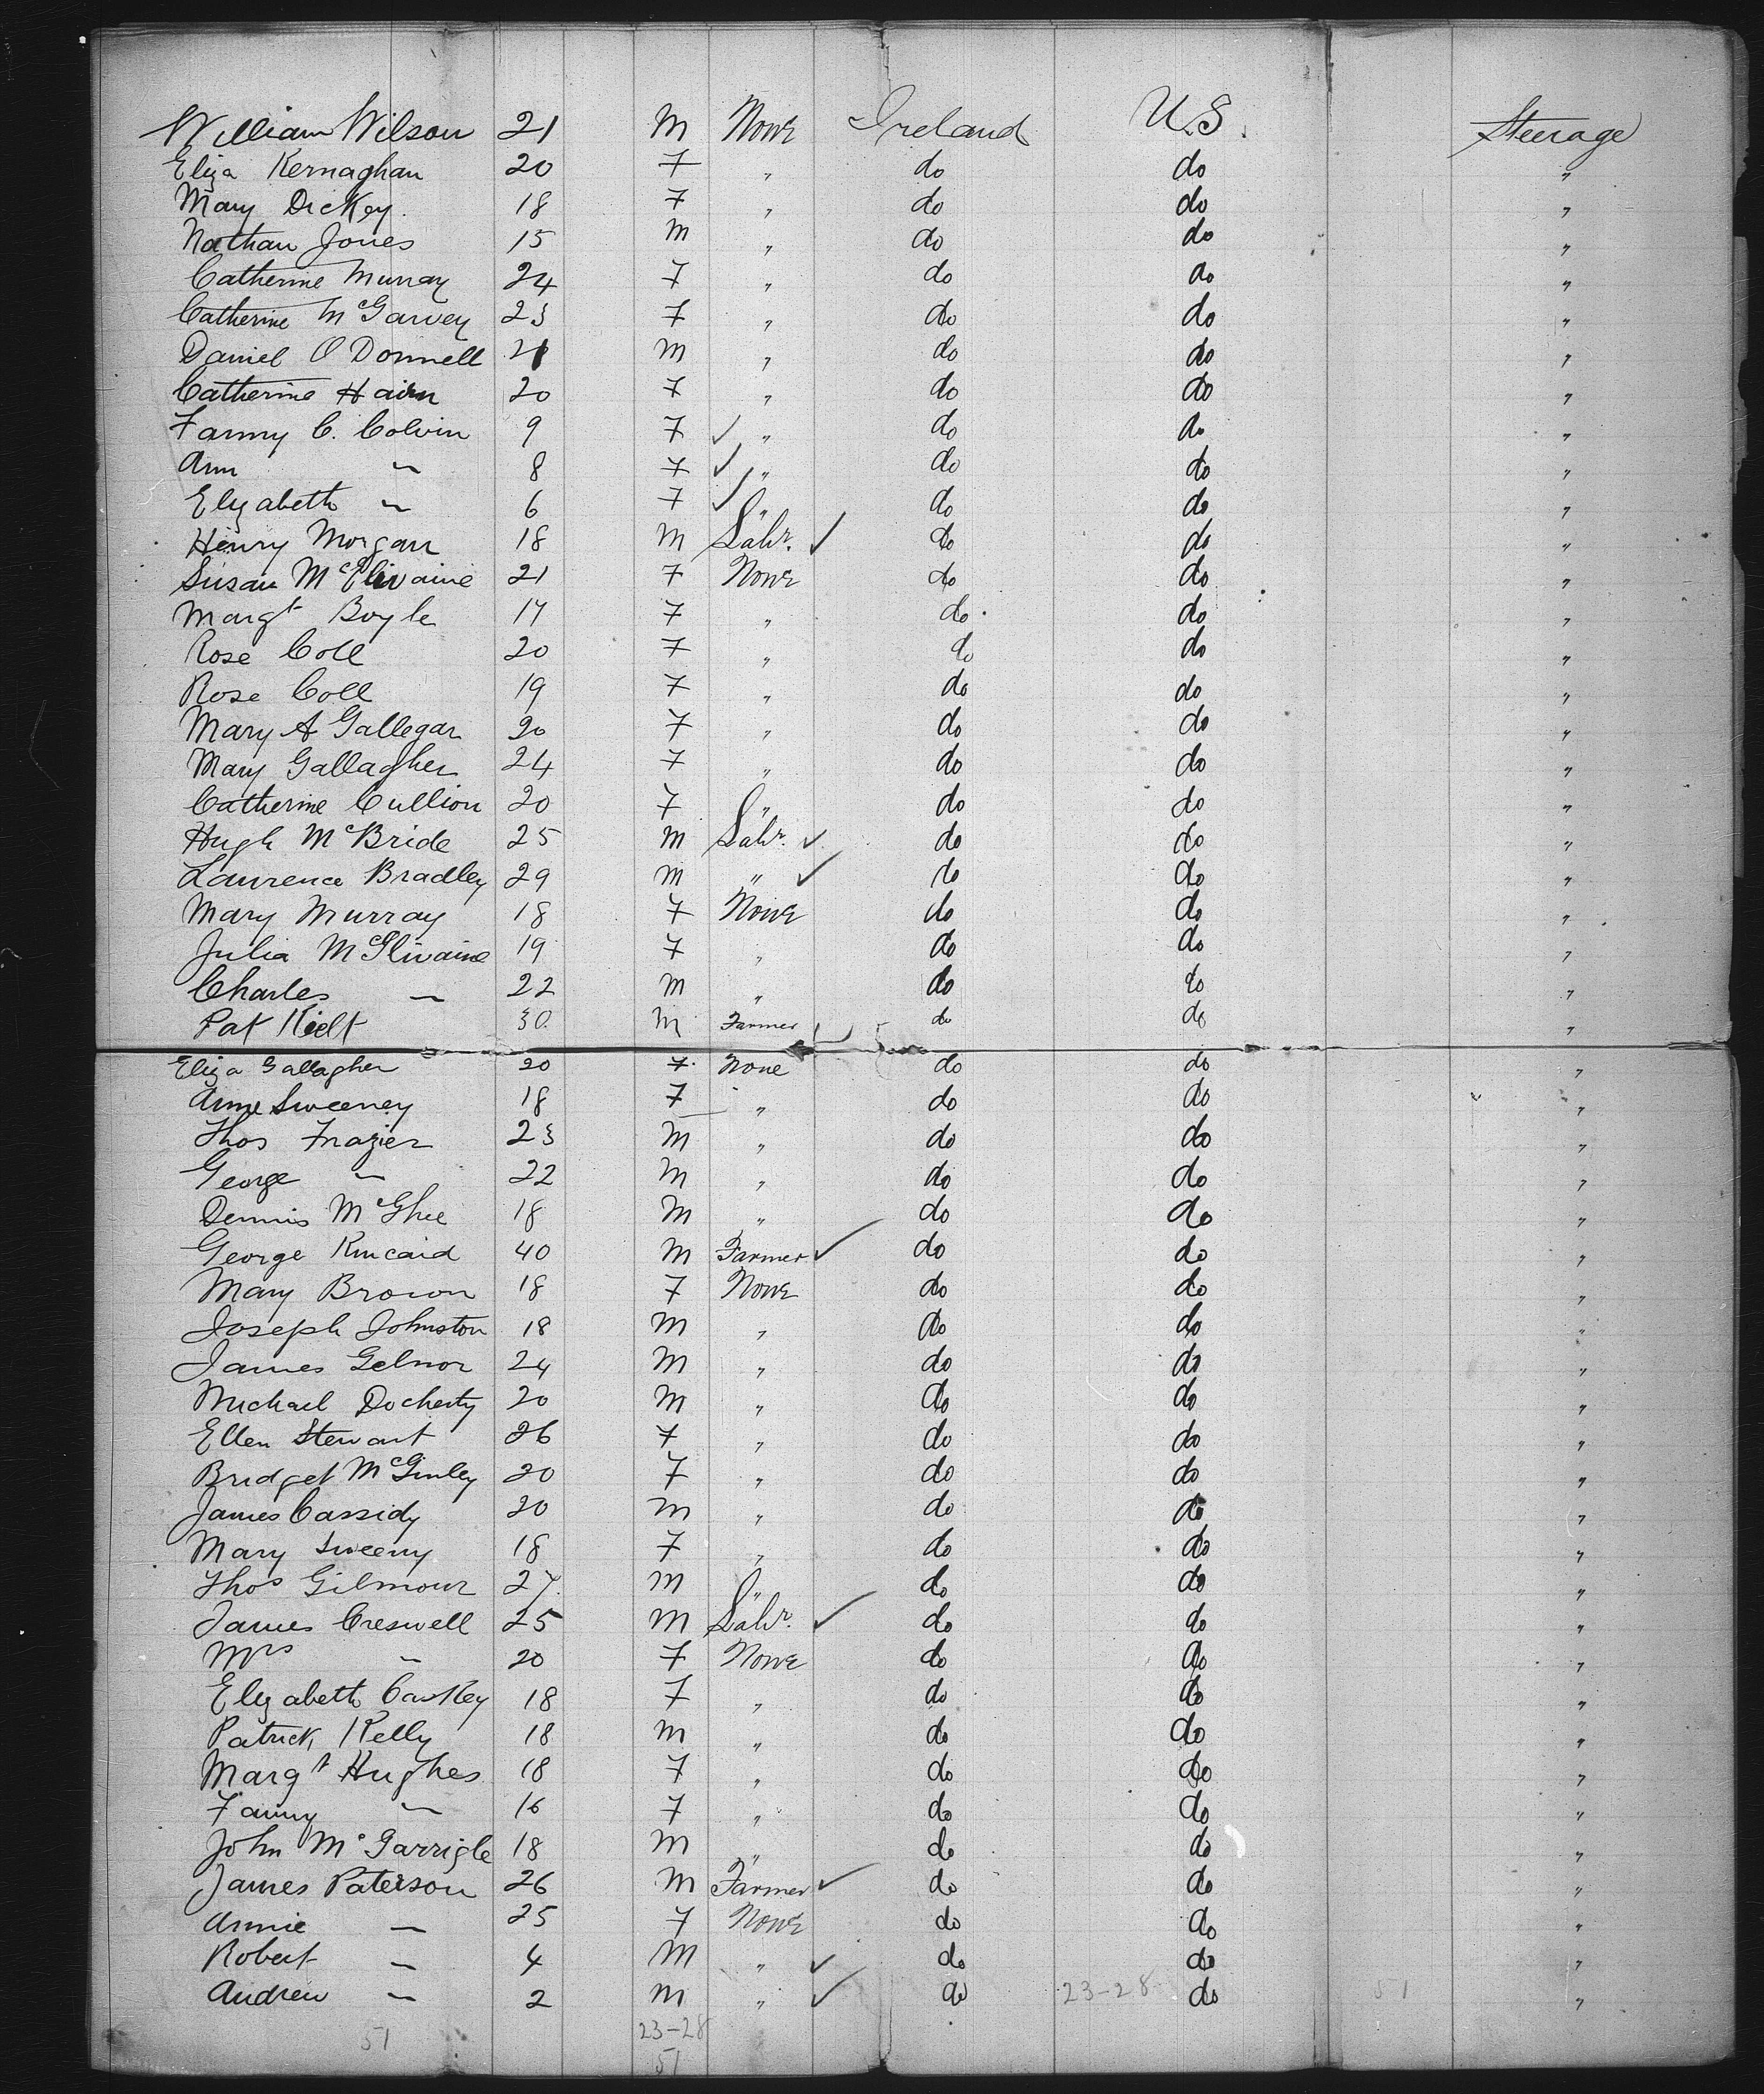 William Wilson 21 M None Ireland U.S. Steerage
Eliza Kernaghan 20 F " do do "
Mary Dickey 18 F " do do "
Nathan Jones 15 M " do do "
Catherine Murray 24 F " do do "
Catherine McGarvey 23 F " do do "
Daniel O Donnell 21 M " do do "
Catherine 20 F " do do "
Fanny C. Colvin 9 F ✓ " do do "
Ann " 8 F ✓ " do do "
Elizabeth " 6 F ✓ " do do "
Henry Morgan 18 M Labr. ✓ do do "
Susan McIlwaine 21 F None do do "
Margt Boyle 17 F " do do "
Rose Coll 20 F " do do "
Rose Coll 19 F " do do "
Mary A Gallegar 20 F " do do "
Mary Gallagher 24 F " do do "
Catherine Cullion 20 F " do do "
Hugh McBride 25 M Labr. ✓ do do "
Laurence Bradley 29 M " ✓ do do "
Mary Murray 18 F None do do "
Julia McIlwaine 19 F " do do "
Charles " 22 M " do do "
Pat Kielt 30 M Farmer ✓ do do "
Eliza Gallagher 20 F None do do "
Anne Sweeney 18 F " do do "
Thos Frazier 23 M " do do "
George " 22 M " do do "
Dennis McGhee 18 M " do do "
George Kincaid 40 M Farmer ✓ do do "
Mary Brown 18 F None do do "
Joseph Johnston 18 M " do do "
James Gelnor 24 M " do do "
Michael Docherty 20 M " do do "
Ellen Stewart 26 F " do do "
Bridget McGinley 20 F " do do "
James Cassidy 20 M " do do "
Mary Sweeny 18 F " do do "
Thos Gilmour 27 M " do do "
James Creswell 25 M Labr. ✓ do do "
Mrs " 20 F None do do "
Elizabeth Caskey 18 F " do do "
Patrick Kelly 18 M " do do "
Margt Hughes 18 F " do do "
Fanny " 16 F " do do "
John McGarrigle 18 M " do do "
James Paterson 26 M Farmer ✓ do do "
Annie " 25 F None do do "
Robert " 4 M " ✓ do do "
Andrew " 2 M " ✓ do 23-28 do 51 "
51 23-28
51